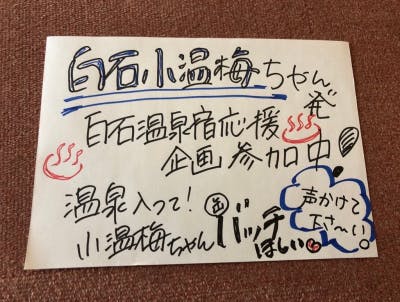 白石小温梅ちゃん発
白石温泉宿応援
企画参加中!
温泉入って!
小温梅ちゃん
缶バッチ
ほしい
声かけて
下さ〜い。